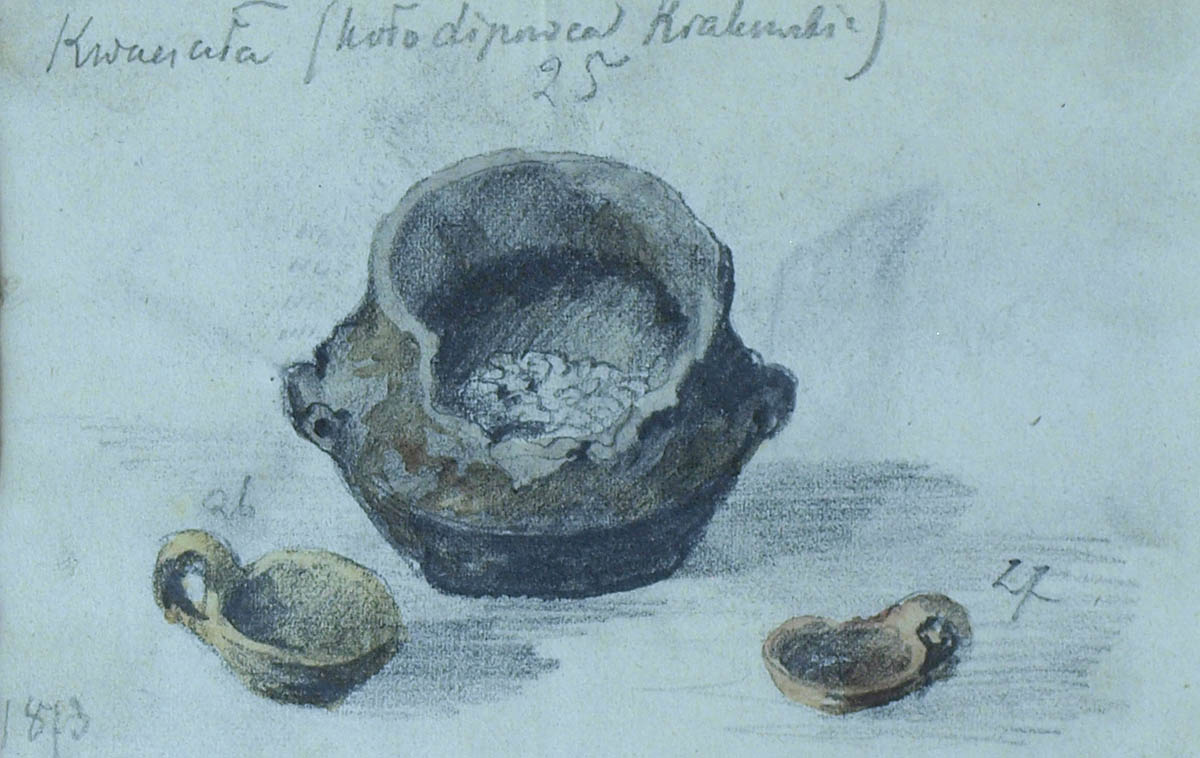 Kwaczała (koło Lipowca Krakowskie)
25
26
27
1873